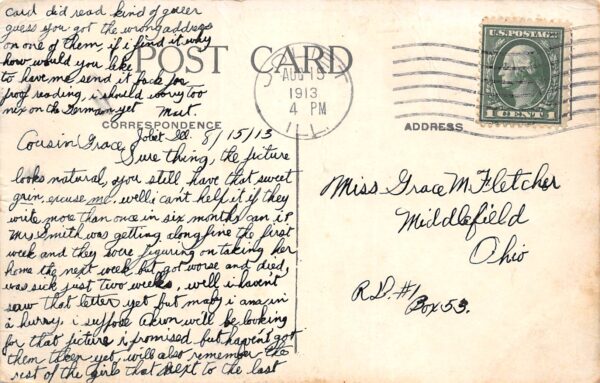 card did read kind of queer
guess you got the wrong address
on one of them, if i find it why
how would you like
to have me send it back for
proof reading, i should worry too
nix on the German yet Mut.
POST CARD
JOLIET
AUG 15
1913
4 PM
ILL.
U.S. POSTAGE
1 CENT 1
CORRESPONDENCE
ADDRESS
Joliet Ill. 8/15/13
Cousin Grace,
Sure thing, the picture
looks natural, you still have that sweet
grin, excuse me, well, i cant help it if they
write more than once in six months can i?
Mrs Smith was getting along fine the first
week and they were figuring on taking her
home the next week but got worse and died,
was sick just two weeks, well i havent
saw that letter yet but mayby i am in
a hurry. i suppose Akron will be looking
for that picture i promised but havent got
them taken yet, will also remember the
rest of the girls that next to the last
Miss Grace M. Fletcher
Middlefield
Ohio
R.D. #1
Box 53.